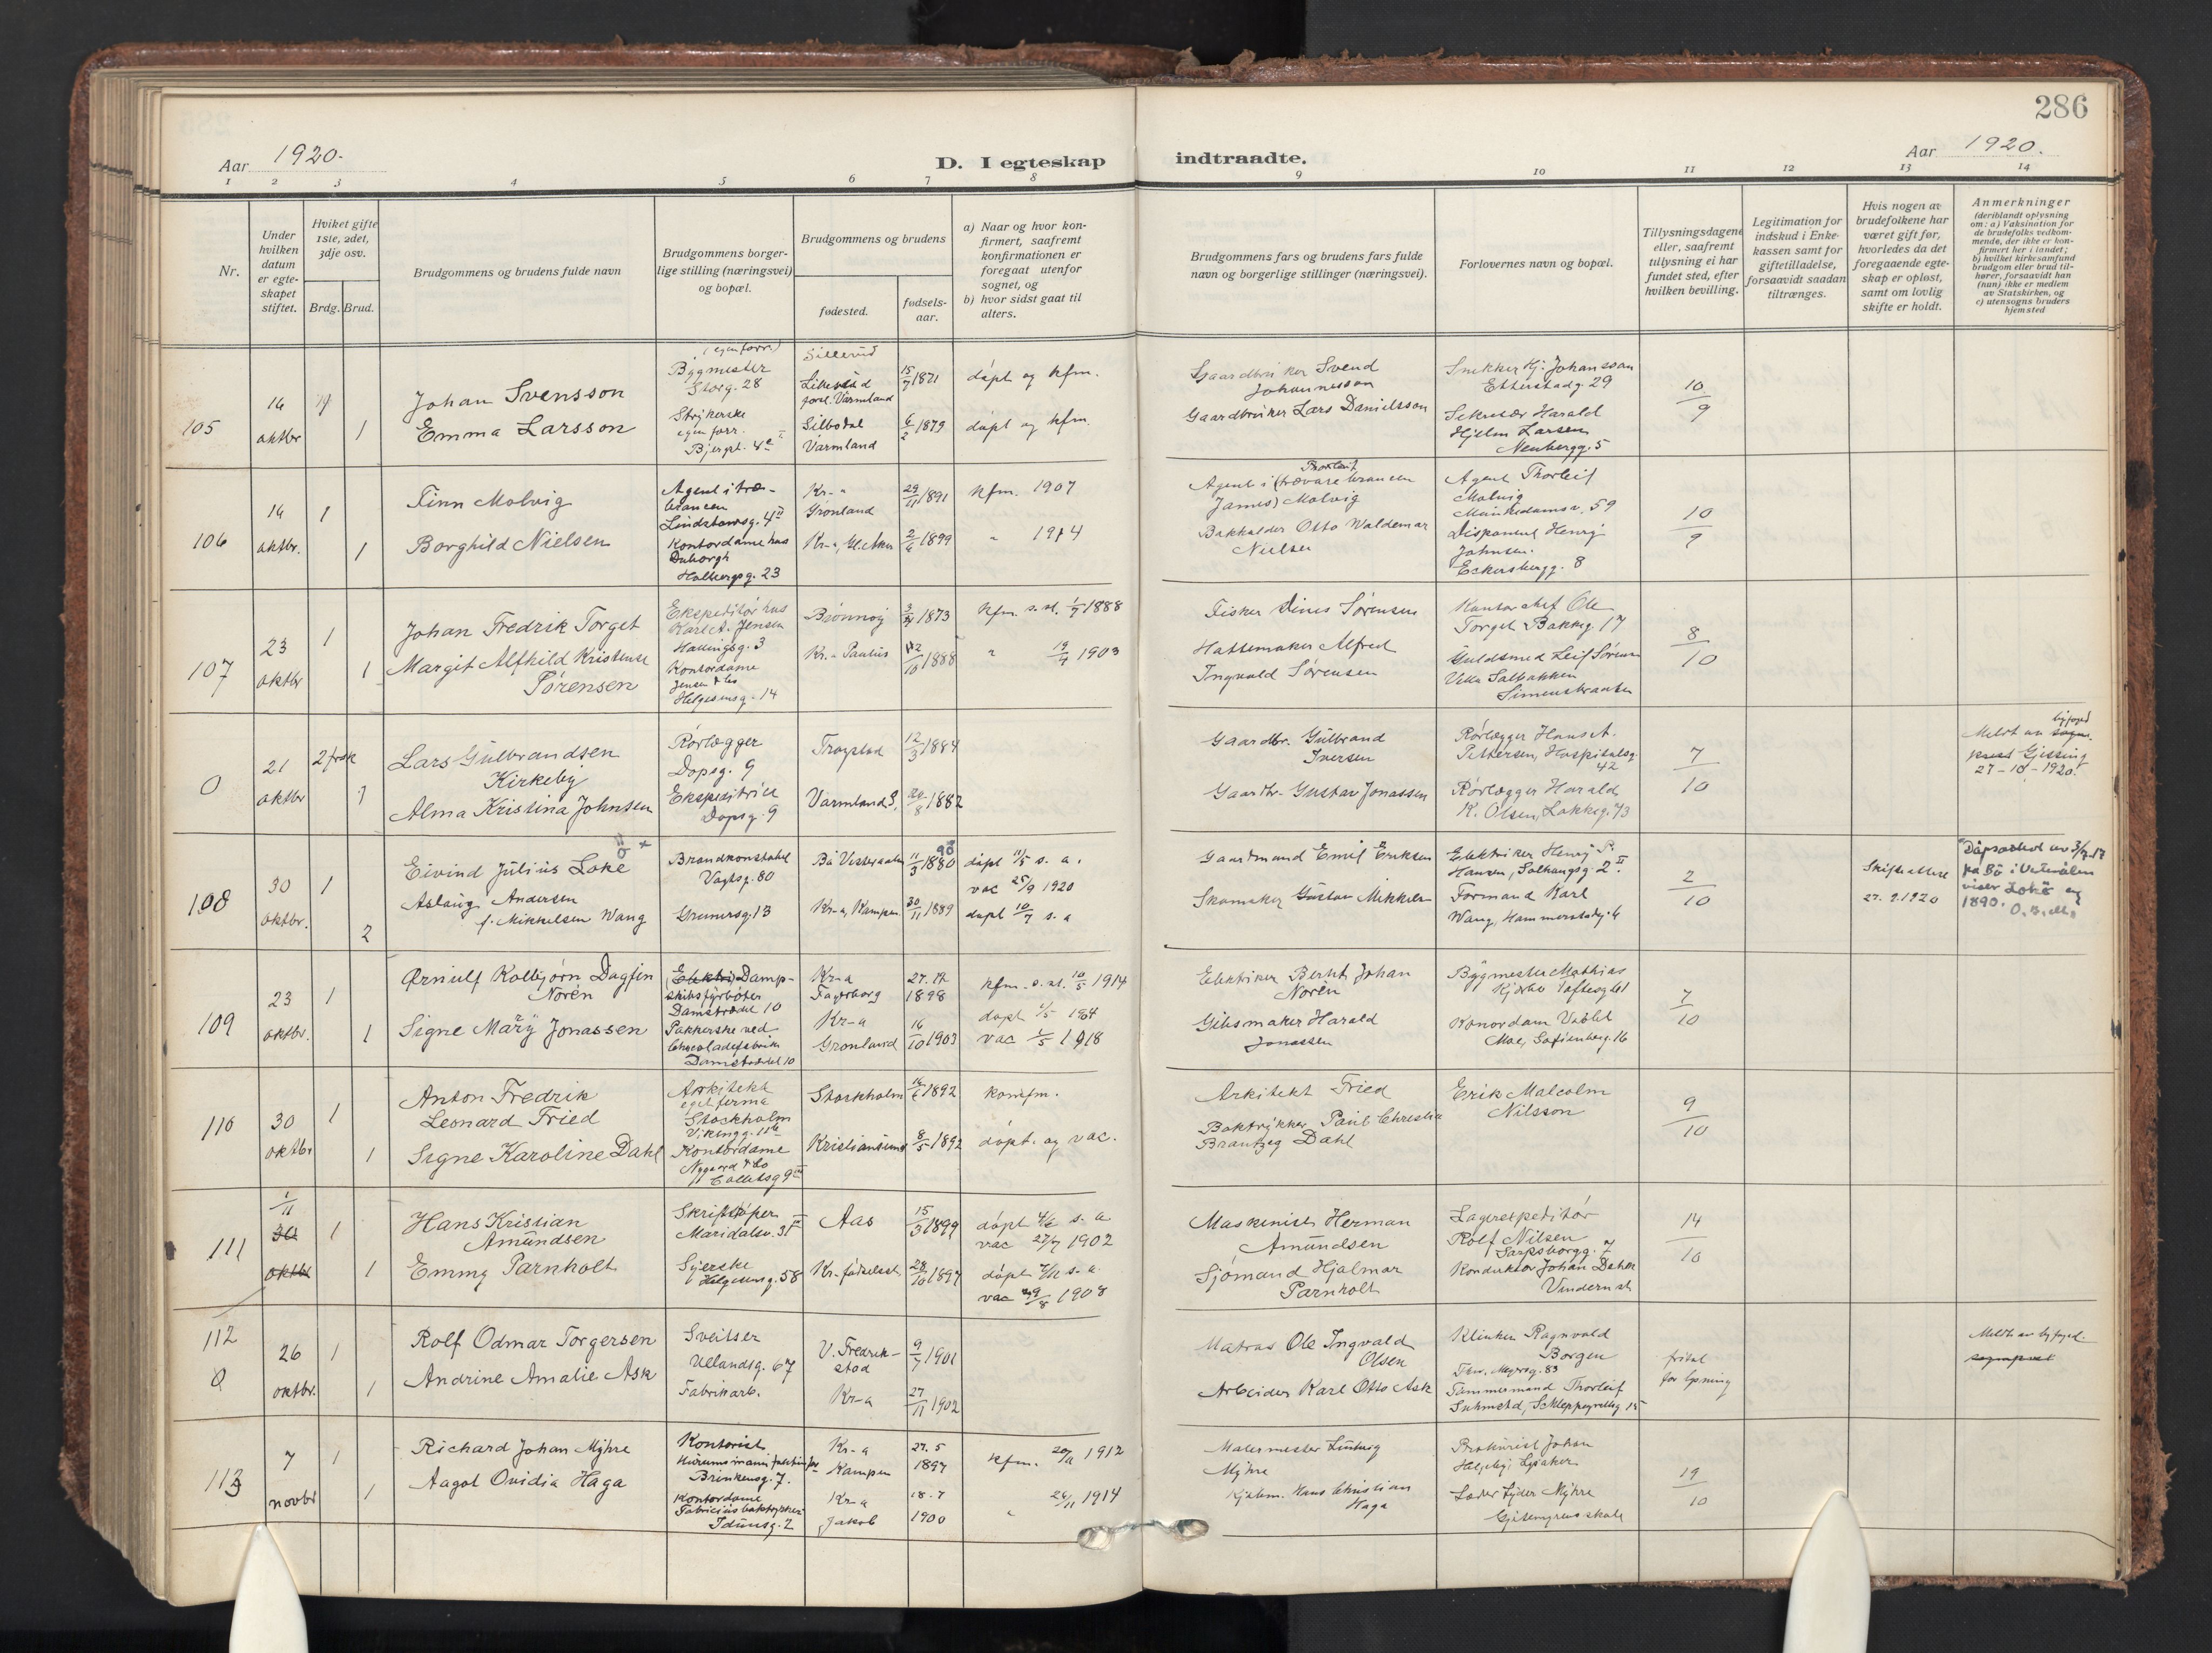 286
Aar 1920.
D. I egteskap
indtraadte.
Aar 1920.
1 2 3 4 5 6 7 8 9 10 11 12 13 14
Nr.
Under hvilken datum er egteskapet stiftet.
Hviket gifte 1ste, 2det, 3dje osv.
Brdg. Brud.
Brudgommens og brudens fulde navn
Brudgommens borgerlige stilling (næringsvei) og bopæl.
Brudgommens og brudens
fødested.
fødselsaar.
a) Naar og hvor konfirmert, saafremt konfirmationen er foregaat utenfor sognet, og
b) hvor sidst gaat til alters.
Brudgommens fars og brudens fars fulde navn og borgerlige stillinger (næringsvei).
Forlovernes navn og bopæl.
Tillysningsdagene eller, saafremt tillysning ei har fundet sted, efter hvilken bevilling.
Legitimation for indskud i Enkekassen samt for giftetilladelse, forsaavidt saadan tiltrænges.
Hvis nogen av brudefolkene har været gift før, hvorledes da det foregaaende egteskap er opløst, samt om lovlig skifte er holdt.
Anmerkninger
(deriblandt oplysning om: a) Vaksination for de brudefolks vedkommende, der ikke er konfirmert her i landet; b) hvilket kirkesamfund brudgom eller brud tilhører, forsaavidt han (hun) ikke er medlem av Statskirken, og c) utensogns bruders hjemsted
105
16
oktbr
1
Johan Svensson
Emma Larsson
Bygmester
Storg. 28
Strykerske
egen forr.
Sillerud
Värmland
Silbodal
Värmland
15/7 1871
6/2 1879
døpt og kfm.
døpt og kfm.
Gaardbruker Svend
Johannesson
Gaardbruker Lars Danielsson
Snekker Hj. Johansson
Etterstadg. 29
Sekretær Harald
Hjelm Larsen
Neubergg. 5
10/9
106
16
oktbr.
1
1
Finn Molvig
Borghild Nielsen
Agent i træbrancen
Lindstowsg. 4 II
Kontordame hos
Duborgh
Holbergsg. 23
Kr.a
Grønland
Kr-a, Gl. Aker
29/11 1891
2/6 1899
kfm. 1907
" 1914
Agent i (trævarebrancen
Thorleif
James) Molvig
Bakholder Otto Waldemar
Nielsen
Agent Thorleif
Molvig
Munkedamsv. 59
Disponent Henry
Johnsen.
Eckersbergg. 8
10/9
107
23
oktbr
1
1
Johan Fredrik Torget
Margit Alfhild Kristense
Sørensen
Ekspeditør hos
Karl A. Jensen
Hallingsg. 3
Kontordame
Jensen & Co
Helgesensg. 14
Brønnøy
Kr.a Paulus
1873
1888
kfm. s. st. 1/7 1888
" 19/4 1903
Fisker Dines Sørensen
Hattemaker Alfred
Ingvald Sørensen
Kontorchef Ole
Torget Bakkeg. 17
Guldsmed Leif Sørensen
Villa Solbakken
Simensbraaten
8/10
0
21
oktbr
2 frask
1
Lars Gulbrandsen
Kirkeby
Alma Kristina Johnsen
Rørlægger
Dopsg. 9
Ekspeditrice
Dopsg. 9
Trøgstad
Värmland S.
12/3 1884
20/8 1882
Gaardbr. Gulbrand
Iversen
Gaardbr. Gustav Jonassen
Rørlægger Hans A.
Pettersen, Hospitalsg.
42
Rørlægger Harald
K. Olsen, Lakkeg. 73
7/10
Meldt av byfoged
Gjessing
27-10-1920.
108
30
oktbr.
1
2
Eivind Julius Loke
Aslaug Andersen
f. Mikkelsen Wang
Brandkonstabel
Vogtsg. 80
Grunersg. 13
Bø Vesteraalen
Kr-a, Kampen
11/3 1880
90
30/11 1889
døpt 11/5 s. a.
vac 25/9 1920
døpt 10/7 s. a
Gaardmand Emil Eriksen
Skomaker Gustav Mikkelsen
Elektriker Henry S.
Hansen, Solhaugsg. 2 II
Formand Karl
Wang, Hammerstadg. 6
2/10
Skifteattest
27. 9. 1920
Dåpsattest av 3/9-17
fra Bø i Vesterålen
viser Lokø og
1890. O. B. M.
109
23
oktbr.
1
1
Ørnulf Kolbjørn Dagfin
Norén
Signe Mary Jonassen
(Elektri) Dampskibsfyrbøter
Damstrædet 10
Pakkerske ved
Chocoladefabrik
Damstrædet 10
Kr-a
Fagerborg
Kr-a
Grønland
27. 12
1898
16/10 1903
kfm. s. st. 10/5 1914
døpt 1/5 1904
vac 2/5 1918
Elektriker Bernt Johan
Norén
Gibsmaker Harald
Jonassen
Bygmester Mathias
Kjørbo Toftesg 61
Konordam Valbl
Moe, Sofienberg. 16
7/10
110
30
oktbr
1
1
Anton Fredrik
Leonard Fried
Signe Karoline Dahl
Arkitekt
eget firma
Stockholm
Vikingg. 11 b
Kontordame
Nygaard & Co
Collettsg 9 III
Stockholm
Kristiansund
16/6 1892
8/5 1892
konfm.
døpt. og vac.
Arkitekt Fried
Boktrykker Paul Christian
Brantzeg Dahl
Erik Malcolm
Nilsson
9/10
111
1/11
30
oktbr
1
1
Hans Kristian
Amundsen
Emmy Parnholt
Skriftstøper
Maridalsv. 31 II
Syerske
Helgesensg. 58
Aas
Kr. fødselsst.
15/3 1899
28/10 1897
døpt 4/6 s. a
vac 27/7 1902
døpt 7/12 s. a.
vac 29/8 1908
Maskinist Herman
Amundsen
Sjømand Hjalmar
Parnholt
Lagerexpeditør
Rolf Nilsen
Sarpsborgg. 7
Konduktør Johan Dehli
Vindern st
14/10
112
0
26
oktbr.
1
1
Rolf Odmar Torgersen
Andrine Amalie Ask
Sveitser
Uelandsg. 67
Fabrikarb.
V. Fredrikstad
Kr-a
9/7 1901
27/11 1902
Matros Ole Ingvald
Olsen
Arbeider Karl Otto Ask
Klinker Ragnvald
Borgen
Thv. Meyersg. 83
Tømmermand Thorleif
Suhmsted, Schleppegrellsg 15
fritat
for lysning
Meldt av byfoged
113
7
novbr
1
1
Richard Johan Myhre
Aagot Ovidia Haga
Kontorist
Brinkensg. 7.
Kontordame
Fabricius boktrykkeri
Idunsg. 2
Kr-a
Kampen
Kr-a
Jakob
27. 5
1897
18. 7
1900
kfm. 20/11 1912
" 26/11 1914
Malermester Ludvig
Myhre
Kjøbm. Hans Christian
Haga
Prokurist Johan
Helseby, Lysaker
Læder Lyder Myhre
Gjetemyrens skole
19/10